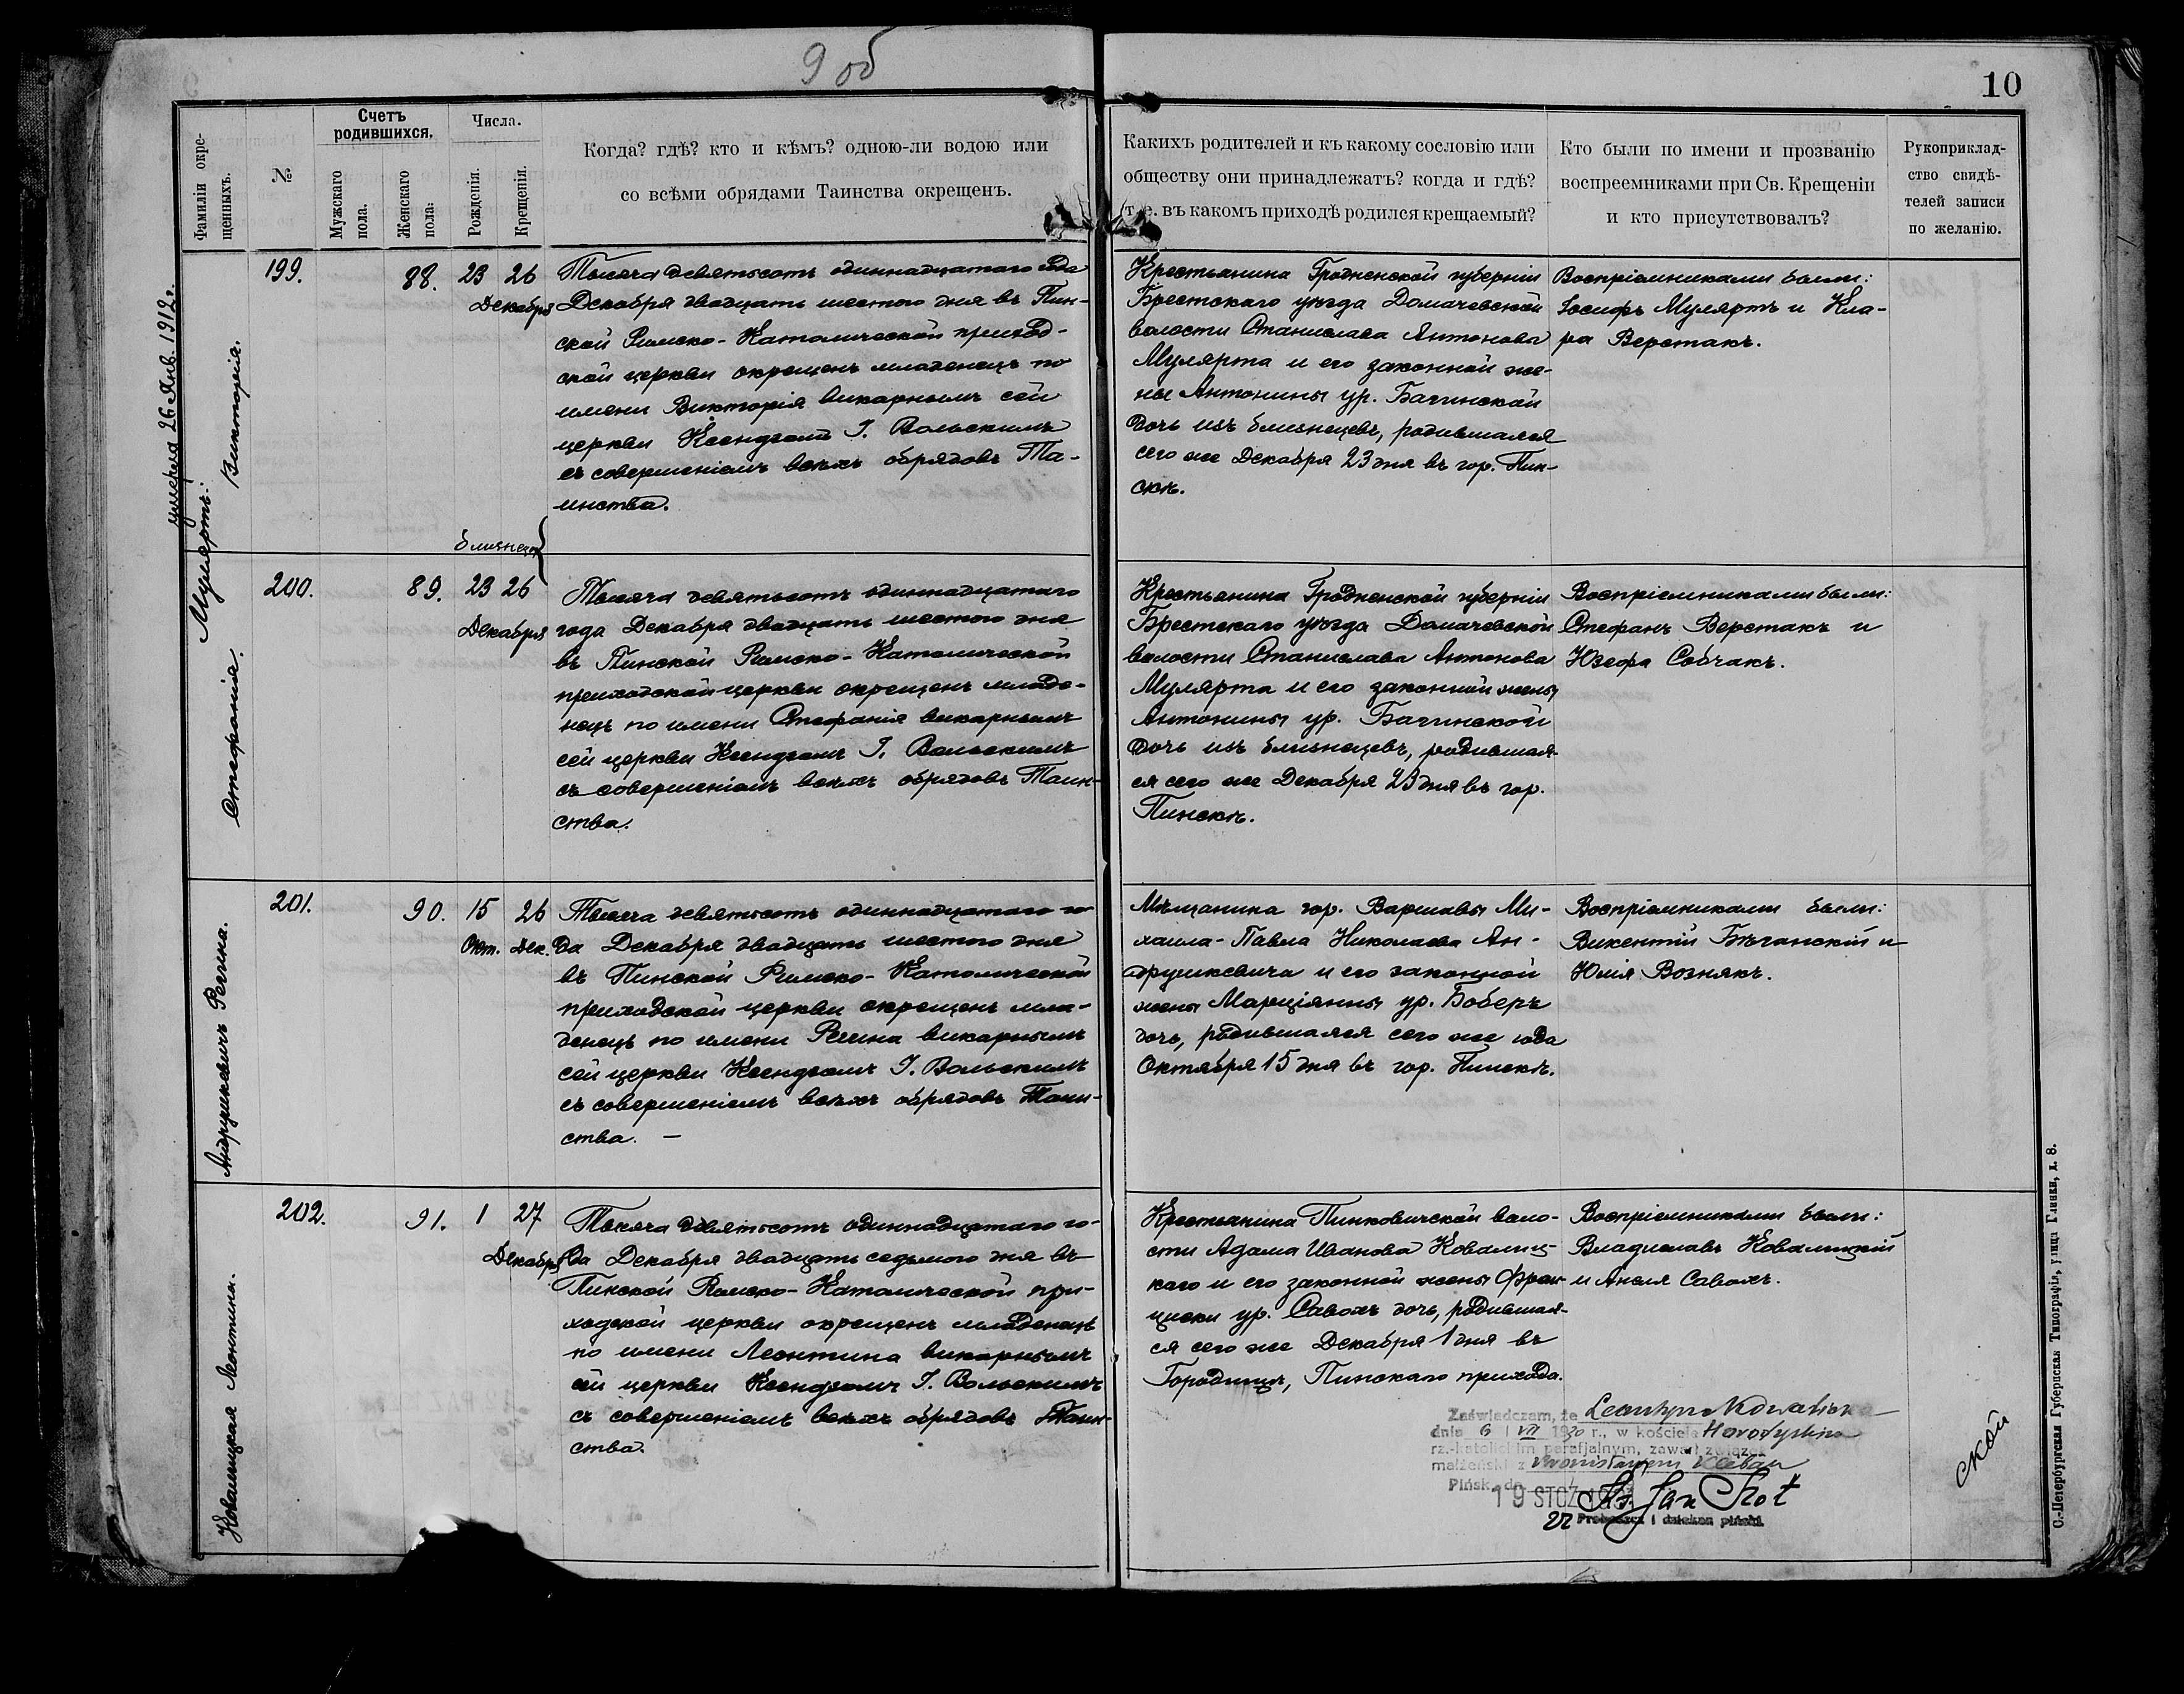 9 об
10
Фамиліи окрещенныхъ.
№
Счетъ родившихся.
Мужскаго пола.
Женскаго пола.
Числа.
Рожденія.
Крещенія.
Когда? гдѣ? кто и кѣмъ? одною-ли водою или
со всѣми обрядами Таинства окрещенъ.
Какихъ родителей и къ какому сословію или
обществу они принадлежатъ? когда и гдѣ?
т. е. въ какомъ приходѣ родился крещаемый?
Кто были по имени и прозванію
воспреемниками при Св. Крещеніи
и кто присутствовалъ?
Рукоприклад-
ство свидѣ-
телей записи
по желанію.
умерла 26 Янв. 1912 г.
Мулярть:
Викторія.
199.
88.
23 26
Декабря
Тысяча девятьсотъ одиннадцатаго года
Декабря двадцать шестого дня въ Пин-
ской Римско-Католической приход-
ской церкви окрещенъ младенецъ по
имени Викторія викарнымъ сей
церкви Ксендзомъ І. Вольскимъ
съ совершеніемъ всѣхъ обрядовъ Та-
инства.
Крестьянина Гродненской губерніи
Брестскаго уѣзда Домачевской
волости Станислава Антонова
Мулярта и его законной же-
ны Антонины ур. Багинской
дочь изъ близнецевъ, родившаяся
сего же Декабря 23 дня въ гор. Пин-
скѣ.
Воспріемниками были:
Іосифъ Муляртъ и Кла-
ра Верстакъ.
близнецы
Стефанія.
200.
89.
23 26
Декабря
Тысяча девятьсотъ одиннадцатаго
года Декабря двадцать шестого дня
въ Пинской Римско-Католической
приходской церкви окрещенъ младе-
нецъ по имени Стефанія викарнымъ
сей церкви Ксендзомъ І. Вольскимъ
съ совершеніемъ всѣхъ обрядовъ Таин-
ства.
Крестьянина Гродненской губерніи
Брестскаго уѣзда Домачевской
волости Станислава Антонова
Мулярта и его законной жены
Антонины ур. Багинской
дочь изъ близнецевъ, родившая-
ся сего же Декабря 23 дня въ гор.
Пинскѣ.
Воспріемниками были:
Стефанъ Верстакъ и
Юзефа Собчакъ.
Андрушкевичъ Регина.
201.
90.
15 26
Окт. Дек.
Тысяча девятьсотъ одиннадцатаго го-
да Декабря двадцать шестого дня
въ Пинской Римско-Католической
приходской церкви окрещенъ мла-
денецъ по имени Регина викарнымъ
сей церкви Ксендзомъ І. Вольскимъ
съ совершеніемъ всѣхъ обрядовъ Таин-
ства. —
Мѣщанина гор. Варшавы Ми-
хаила-Павла Николаева Ан-
друшкевича и его законной
жены Марціянны ур. Боберъ
дочь, родившаяся сего же года
Октября 15 дня въ гор. Пинскѣ.
Воспріемниками были:
Викентій Бѣганскій и
Юлія Вознякъ.
Ковалицкая Леонтина.
202.
91.
1 27
Декабря
Тысяча девятьсотъ одиннадцатаго го-
да Декабря двадцать седьмого дня въ
Пинской Римско-Католической при-
ходской церкви окрещенъ младенецъ
по имени Леонтина викарнымъ
сей церкви Ксендзомъ І. Вольскимъ
съ совершеніемъ всѣхъ обрядовъ Таин-
ства.
Крестьянина Пинковичской воло-
сти Адама Иванова Ковалиц-
каго и его законной жены Фран-
циски ур. Савохъ дочь, родившая-
ся сего же Декабря 1 дня въ
Городищѣ, Пинскаго прихода.
Воспріемниками были:
Владиславъ Ковалицкій
и Анеля Савохъ.
Zaświadczam, że Leontyna
dnia 6 / VII 1930 r., w kościele
rz.-katolickim parafjalnym, zawarł związek
małżeński z Bronisławem
Pińsk, dn. 19 STCZ
Ks. Jan
Proboszcz i dziekan piński
ской
С.-Петербургская Губернская Типографія, улица Глинки, д. 8.